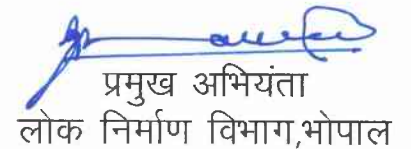 प्रमुख अभियंता
लोक निर्माण विभाग,भोपाल